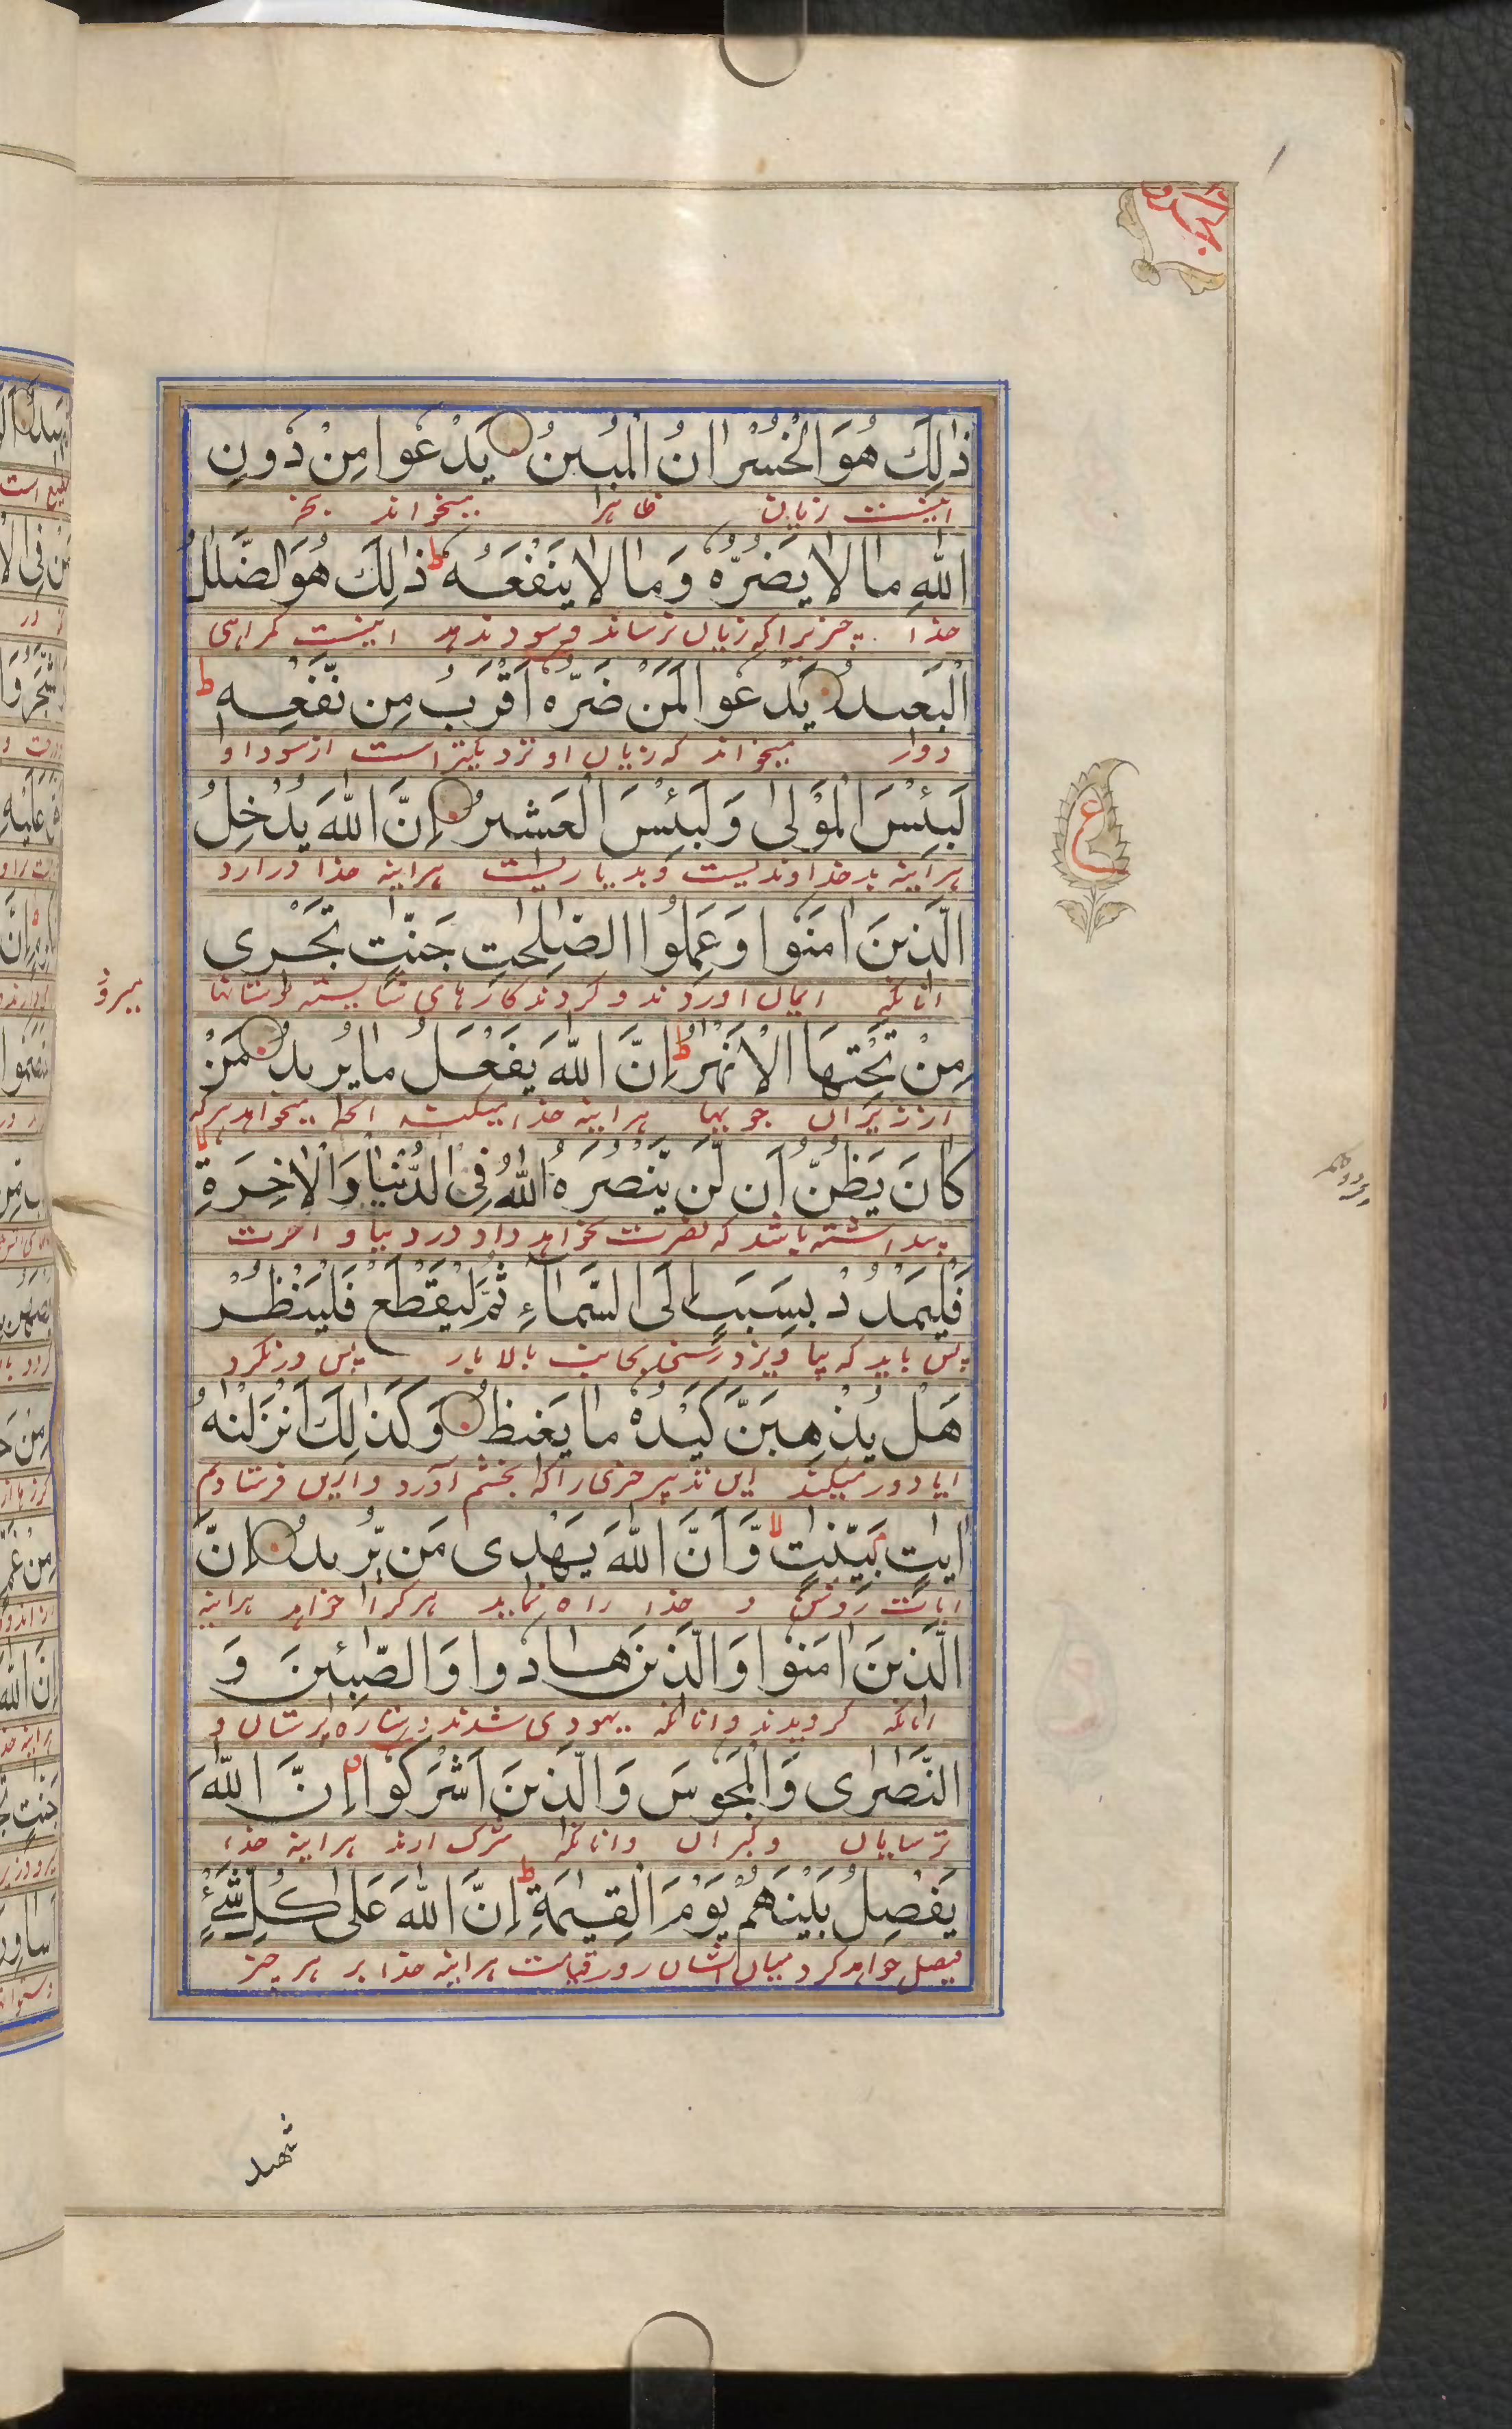 ذٰلِكَ هُوَ الْخُسْرَانُ الْمُبِينُ يَدْعُوا مِنْ دُونِ
اینست زیان ظاهرا میخواند بجز
اللّٰهِ مَا لَا يَضُرُّهُ وَمَا لَا يَنْفَعُهُ ط ذٰلِكَ هُوَ الضَّلٰلُ
خدا چیزیرا که زیان نرساند و سود ندهد اینست گمراهی
الْبَعِيدُ يَدْعُوا لَمَنْ ضَرُّهُ أَقْرَبُ مِن نَّفْعِهِ ط
دوار میخواند که زیان او نزدیکتر است از سود او
لَبِئْسَ الْمَوْلٰى وَلَبِئْسَ الْعَشِيرُ إِنَّ اللّٰهَ يُدْخِلُ
هراینه بد خداوندیست و بد یاریست هراینه خدا درارد
الَّذِينَ اٰمَنُوا وَعَمِلُوا الصّٰلِحٰتِ جَنّٰتٍ تَجْرِى
انانکه ایمان اوردند و کردند کارهای شایسته بوستانها
میرود
مِنْ تَحْتِهَا الْاَنْهٰرُ ط إِنَّ اللّٰهَ يَفْعَلُ مَا يُرِيدُ مَنْ
از زیران جویها هراینه خدا میکند انچه میخواهد هرکه
كَانَ يَظُنُّ أَن لَّن يَّنْصُرَهُ اللّٰهُ فِى الدُّنْيَا وَالْاٰخِرَةِ
پنداشته باشد که نصرت نخواهد داد در دنیا و اخرت
فَلْيَمْدُدْ بِسَبَبٍ إِلَى السَّمَآءِ ثُمَّ لْيَقْطَعْ فَلْيَنْظُرْ
پس باید که بیاویزد رسنی بجانب بالا پس درنگرد
هَلْ يُذْهِبَنَّ كَيْدُهُ مَا يَغِيظُ وَكَذٰلِكَ أَنْزَلْنٰهُ
ایا دور میکند این تدبیر چیزی را که بخشم آورد واین فرستادم
اٰيٰتٍ بَيِّنٰتٍ لا وَّأَنَّ اللّٰهَ يَهْدِى مَن يُّرِيدُ إِنَّ
ایات روشن و خدا راه نماید هرکرا خواهد هراینه
الَّذِينَ اٰمَنُوا وَالَّذِينَ هَادُوا وَالصّٰبِئِينَ وَ
انانکه گرویدند وانانکه یهودی شدند و ستاره پرستان و
النَّصٰرٰى وَالْمَجُوسَ وَالَّذِينَ أَشْرَكُوا إِنَّ اللّٰهَ
ترسایان و گبران وانانکه شرک ارند هراینه خدا
يَفْصِلُ بَيْنَهُمْ يَوْمَ الْقِيٰمَةِ ط إِنَّ اللّٰهَ عَلٰى كُلِّ شَىْءٍ
فیصل خواهد کرد میان ایشان روز قیامت هراینه خدا بر هر چیز
ع
شهيد